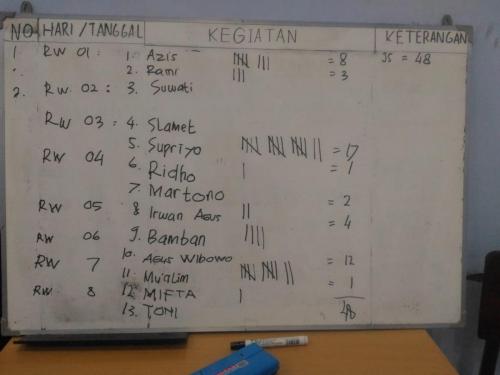 NO HARI / TANGGAL KEGIATAN KETERANGAN
1. RW 01 : 1. Azis = 8 JS = 48
2. Rami = 3
2. RW. 02 : 3. Suwati
RW 03 = 4. Slamet
5. Supriyo = 17
RW 04 6. Ridho = 1
7. Martono
RW 05 8. Irwan Agus = 2
RW 06 9. Bamban = 4
RW 7 10. Agus Wibowo
11. Mu'alim = 12
RW 8 12. MIFTA = 1
13. TONI 48